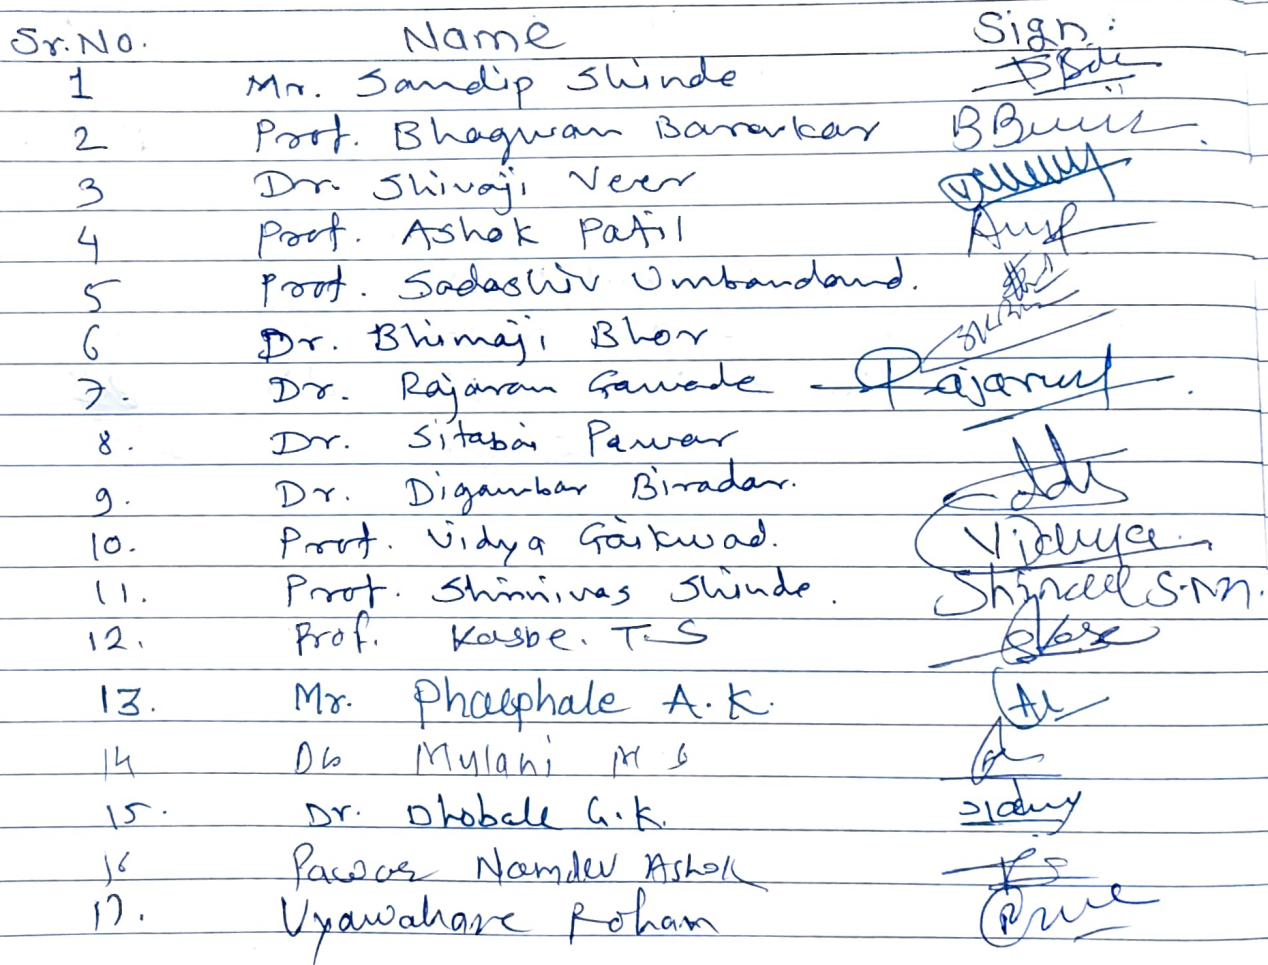 Sr.No. Name Sign:
1 Mr. Sandip Shinde
2 Prof. Bhagwan Banarkar
3 Dr. Shivaji Veer
4 Prof. Ashok Patil
5 Prof. Sadashiv Umbardand.
6 Dr. Bhimaji Bhor
7. Dr. Rajaram Gawade Rajaram
8. Dr. Sitabai Pawar
9. Dr. Digambar Biradar.
10. Prof. Vidya Gaikwad. Vidya
11. Prof. Shrinivas Shinde. Shinde S.N.
12. Prof. Kasbe. T.S
13. Mr. Phalphale A.K.
14 Dr Mulani M S
15. Dr. Dhobale G.K.
16 Pawar Namdev Ashok
17. Vyawahare Roham